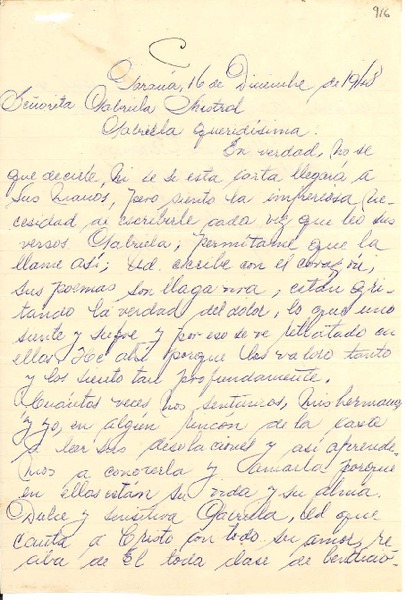 916
Saraña, 16 de Diciembre de 1948
Señorita Gabriela Mistral
Gabriella queridísima.
En verdad, no se
que decirle, ni se si esta carta llegará a
sus manos, pero siento la imperiosa ne-
cesidad de escribirle cada vez que leo sus
versos Gabriela; permítame que la
llame así; Ud. escribe con el corazón,
sus poemas son llaga viva; están gri-
tando la verdad del dolor, lo que uno
siente y sufre y por eso se ve retratado en
ellos. He ahí porque los valoro tanto
y los siento tan profundamente.
Cuántas veces nos sentamos, mis hermanos
y yo, en algún rincón de la casa
a leer sus desolaciones y así aprende-
mos a conocerla y amarla porque
en ellas están su vida y su alma.
Dulce y sensitiva Gabriella, Ud que
canta a Cristo con todo su amor, re
aba de El toda clase de bendicio-